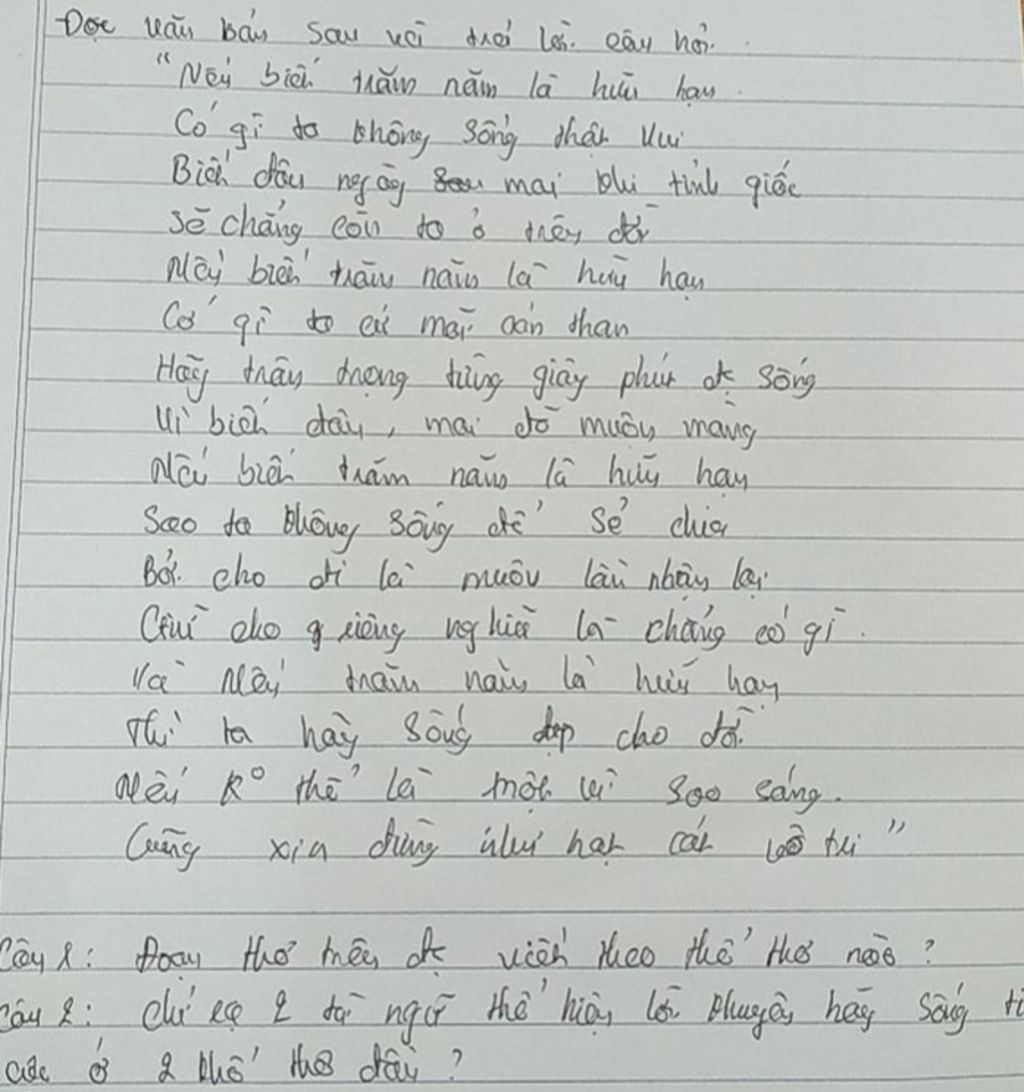 Đọc văn bản sau và trả lời câu hỏi.
"Nếu biết trăm năm là hữu hạn.
Cớ gì ta không sống thật vui
Biết đâu ngày mai khi tỉnh giấc
Sẽ chẳng còn ta ở trên đời
Nếu biết trăm năm là hữu hạn
Cớ gì ta cứ mãi oán than
Hãy trân trọng từng giây phút đc sống
Vì biết đâu, mai đò muôn màng
Nếu biết trăm năm là hữu hạn
Sao ta không sống để sẻ chia
Bởi cho đi là muôn lần nhận lại
Chỉ cho riêng nghĩa là chẳng có gì.
Và Nếu trăm năm là hữu hạn
Thì ta hãy sống đẹp cho đời
Nếu k° thể là một vì sao sáng.
Cũng xin đừng như hạt cát vô tri"
Câu 1: Đoạn thơ trên đc viết theo thể thơ nào?
Câu 2: chỉ ra 2 từ ngữ thể hiện lời khuyên hãy sống
cực ở 2 khổ thơ đầu?